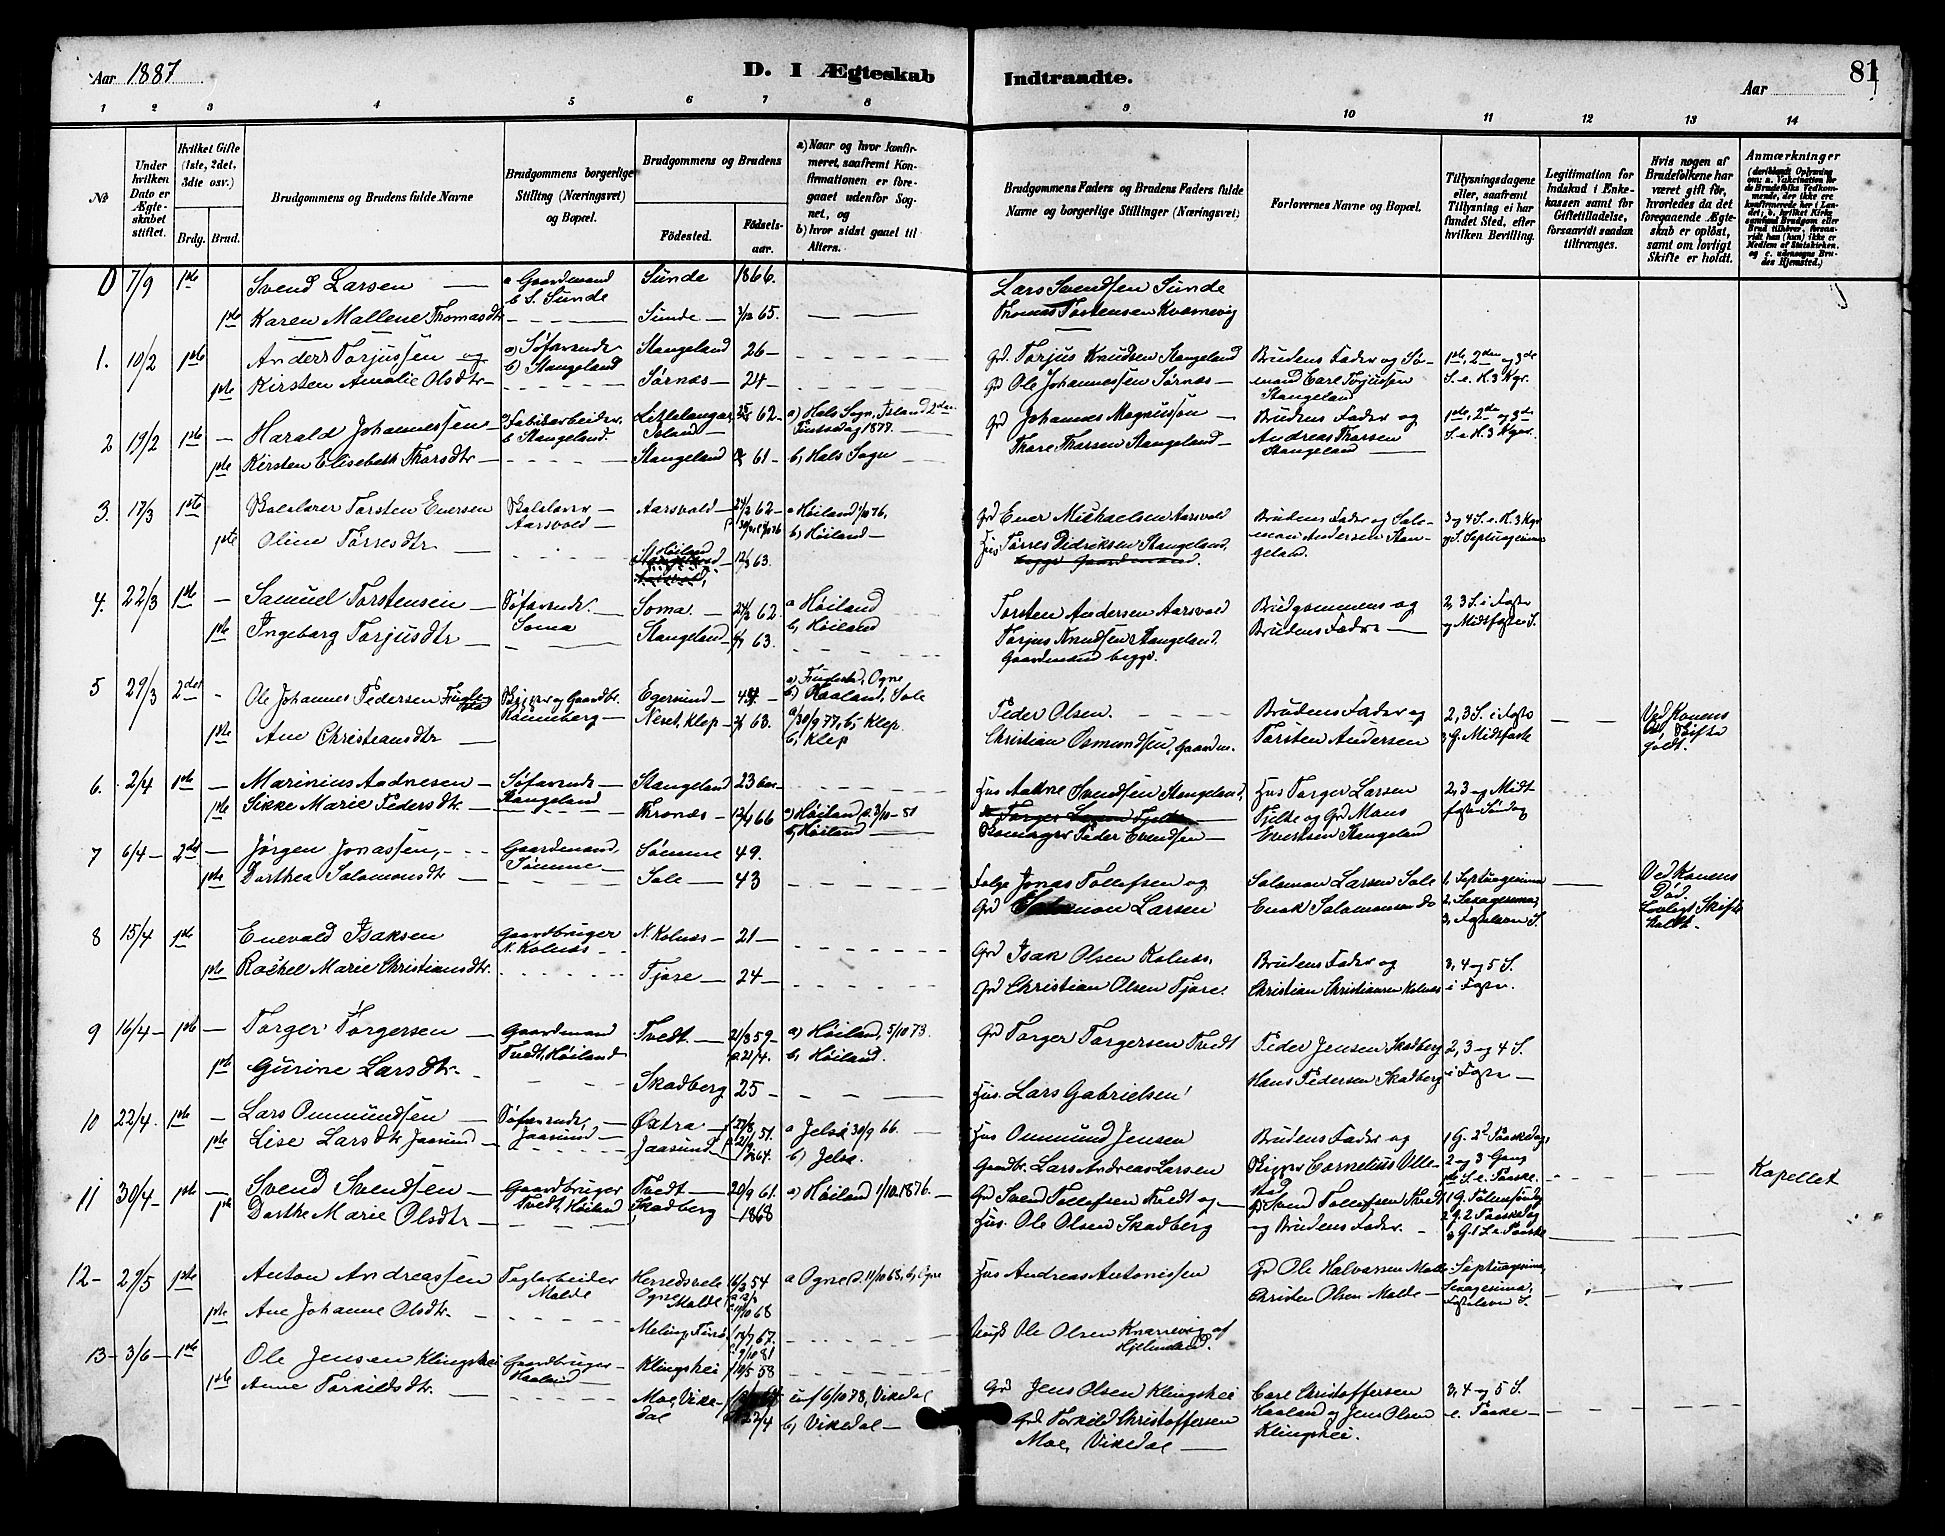 Aar 1887
D. I Ægteskab Indtraadte.
Aar
81
1 2 3 4 5 6 7 8 9 10 11 12 13 14
№
Under hvilken Dato er Ægteskabet stiftet.
Hvilket Gifte (1ste, 2det, 3die osv.)
Brdg. Brud.
Brudgommens og Brudens fulde Navne
Brudgommens borgerlige Stilling (Næringsvei) og Bopæl.
Brudgommens og Brudens
Fødested. Fødselsaar.
a) Naar og hvor konfirmeret, saafremt Konfirmationen er foregaaet udenfor Sognet, og
b) hvor sidst gaaet til Alters.
Brudgommens Faders og Brudens Faders fulde Navne og borgerlige Stillinger (Næringsvei)
Forlovernes Navne og Bopæl.
Tillysningsdagene eller, saafremt Tillysning ei har fundet Sted, efter hvilken Bevilling.
Legitimation for Indskud i Enkekassen samt for Giftetilladelse, forsaavidt saadan tiltrænges.
Hvis nogen af Brudefolkene har været gift før, hvorledes da det foregaaende Ægteskab er opløst, samt om lovligt Skifte er holdt.
Anmærkninger
0 7/9 1ste Svend Larsen a Gaardmand b S. Sunde Sunde 1866. Lars Svendsen Sunde
1ste Karen Mallene Thomasdtr Sunde 3/12 65. Thomas Torstensen Kvernevig
1. 10/2 1ste Anders Torjussen og a) Søfarende b) Stangeland Stangeland 26 Grd. Torjus Knudsen Stangeland Brudens Fader og Sømand Carl Torjussen Stangeland 1ste, 2den og 3die S. e. H. 3 Kgr.
1ste Kirsten Amalie Olsdtr Sørnæs 24 Gr Ole Johannessen Sørnæs
2 19/2 1ste Harald Johannessen Fabrikarbeider b Stangeland Island 62 a) Hals Sogn, Island 1877. b) Hals Sogn Gr Johannes Magnussen Brudens Fader og Andreas Tharsen Stangeland 1ste, 2de og 3die S. e. H. 3 Kgr.
1ste Kirsten Elisebeth Tharsdtr Stangeland 61 Thore Tharsen Stangeland
3. 17/3 1ste Torsten Enersen Aarsvold Aarsvold 24/2 62 a Høiland 1/10 76, b) Høiland Grd Ener Michaelsen Aarsvold Brudens Fader og Salomon Andersen Stangeland. 3 og 4 S. e. H. 3 Kgr og S. Septuagesima
1ste Oline Tørresdtr Høiland 12/3 63. Hus Tørres Didriksen Stangeland, begge Gaardmænd.
4. 22/3 1ste Samuel Torstensen Søfarende Soma Soma 24/3 62. a Høiland b, Høiland Torsten Andersen Aarsvold Brudgommens og Brudens Fader 2, 3 S. i Faste og Midfaste S.
1ste Ingeborg Torjusdtr Stangeland 63 Torjus Knudsen Stangeland. Gaardmænd begge.
5 29/3 2det Ole Johannes Pedersen Fuglestad Skipper og Gaardbr. Rønneberg Egersund 44 a) Fuglestad, Ogne b) Haaland, Sole Peder Olsen. Brudens Fader og Torsten Andersen 2, 3 S. i Faste 3 G. Midfaste Ved Konens Død, Skifte holdt.
1ste Ane Christiansdtr Neset, Klep 63. a/30/9 77, b, Klep Christian Osmundsen, Gaardm.
6. 2/4 1ste Marinius Aadnesen Søfarende Stangeland Stangeland 23 Hus Aadne Svendsen Stangeland, Hus Torger Larsen Tjelte og Grd Mons Evertsen Stangeland 2, 3 og Midtfaste Søndag
1ste Sikke Marie Pedersdtr Thronæs 12/4 66 a) Høiland, d. 3/10 81 b, Høiland Peder Evendsen
7 6/4 2det Jørgen Jonassen, Gaardmand, Sømme Sømme 49. Jonas Tollefsen og Salomon Larsen Sole 1, Septuagesima 2, Sexagesima 3, Fastelavn S. Ved Konens Død Lovligt Skifte holdt.
1ste Dorthea Salomonsdtr Sole 43 Grd Salomon Larsen Enok Salomonsen do
8 15/4 1ste Enevald Isaksen Gaardbruger N. Kolnæs N. Kolnæs 21 Grd Isak Olsen Kolnæs, Brudens Fader og Christian Christiansen Kolnæs 3, 4 og 5 S. i Faste.
1ste Rachel Marie Christiansdtr. Tjore 24 Grd Christian Olsen Tjore.
9 16/4 1ste Torger Torgersen Gaardmand Tvedt, Høiland Tvedt. 21/3 59 a) Høiland, 5/10 73. b, Høiland. Gr Torger Torgersen Tvedt Peder Jensen Skadberg Hans Pedersen Skadberg 2, 3 og 4 S. i Faste
1ste Gurine Larsdtr. Skadberg 25 Hus. Lars Gabrielsen
10 22/4. 1ste Lars Ommundsen Søfarende, Jaasund Østra 27/8 51. a Jelse 30/9 66. b) Jelse. Hus Ommund Jensen Brudens Fader og Skipper Cornelius 1 G. 2d Paaskedag, 2 og 3 Gang 1ste S. e. Paaske.
1ste Lise Larsdtr Jaasund Jaasund 64. Gaardbr. Lars Andreas Larsen
11 30/4 1ste Svend Svendsen Gaardbruger Tvedt, Høiland Tvedt 20/9 61. a) Høiland 1/10 1876. Grd Svend Tollefsen Tvedt og Grd Svend Tollefsen Tvedt og Brudens Fader. 1 G. Palmesøndag 2 G. 2 Paaskedag 3 G. 1 S. e. Paaske Kapellet
1ste Dorthe Marie Olsdtr Skadberg 1868 Hus. Ole Olsen Skadberg
12 29/5 1ste Anton Andreassen Teglarbeider Malde Ogne 16/2 54 a Ogne d. 11/10 68, b, Ogne Hus Andreas Antonissen Gr Ole Halvorsen Malde Christen Olsen Malde Septuagesima, Sexagesima, Fastelavn S.
1ste Ane Johanne Olsdtr. Malde Ole Olsen Knarrevig af Hjelmeland.
13 3/6 1ste Ole Jensen Klingshei Gaardbruger Haaland Klingshei 10/5 58 Gr Jens Olsen Klingshei Carl Christoffersen Haaland og Jens Olsen Klingshei. 3, 4 og 5 S. e. Paaske
1ste Anne Torkildsdtr. Moe, Vikedal 22/4 6/10 78, Vikedal b) Vikedal Grd. Torkild Christoffersen Moe, Vikedal